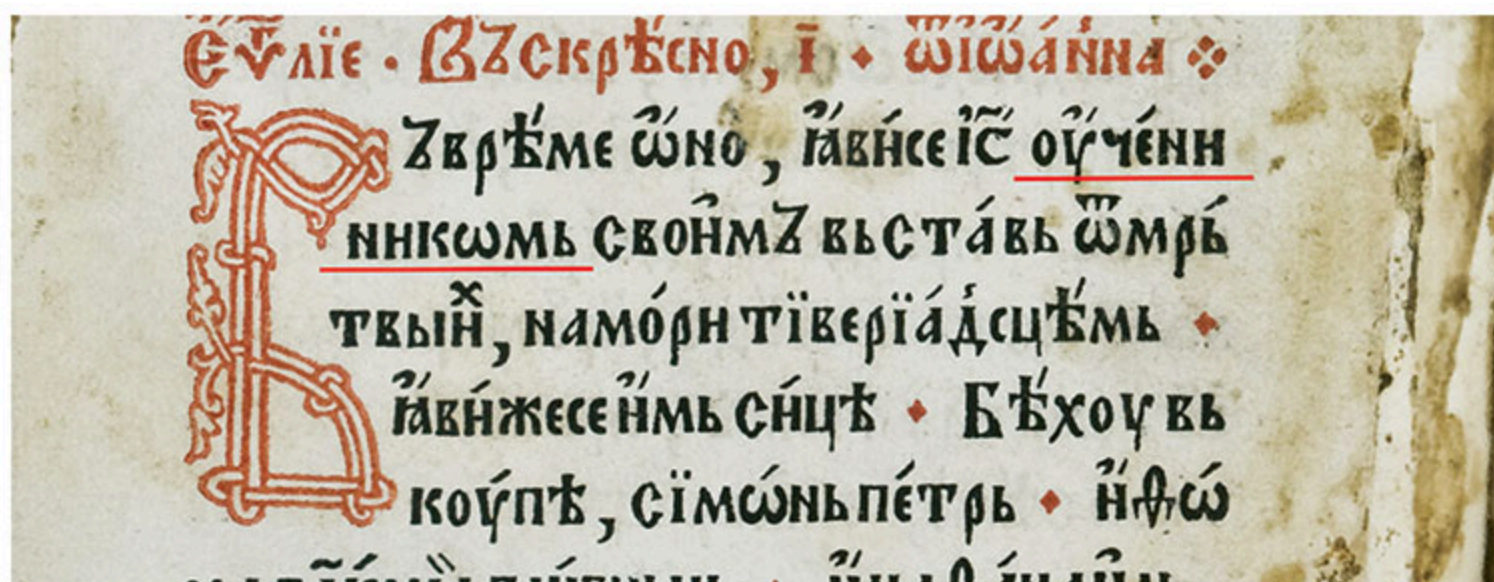 Еѵⷢ҇лїе · Въскрѣсно, і҃ · ѿіѡа́нна
Въврѣ́ме ѡ҆́но̀, ꙗ҆ви́се і҆с҃ оу҆че́ни
никѡмь свои҆мъ вьста́вь ѿмрь́
твыи҆ⷯ, намо́ри тїверїа́дсцѣмь ·
ꙗ҆ви́жесе и҆́мь си́цѣ · Бѣ́хоу вь
коу́пѣ, сїмѡ́нь пе́трь · и҆ѳѡ́